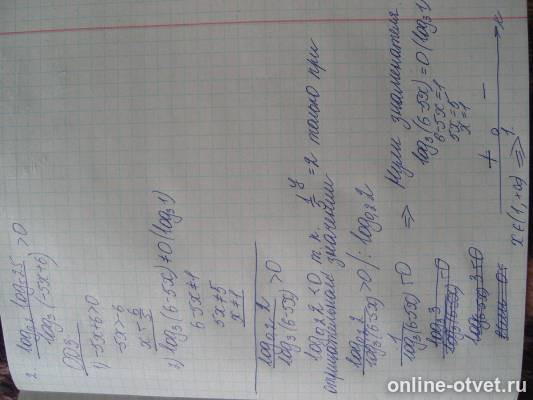 2. log₀,₂ log₃₂ 25 / log₃(-5x+6) > 0
ОДЗ
1) -5x+6>0
-5x>-6
2) log₃(6-5x)≠0 (log₃1)
6-5x≠1
5x≠5
x≠1
log₀,₂ 2 / log₃(6-5x) >0
log₀,₂ 2 <0, т.к. 1/5 ^y = 2 только при
отрицательном значении
log₀,₂ 2 / log₃(6-5x) >0 / : log₀,₂ 2
1 / log₃(6-5x) <0 ⇒ Нули знаменателя
log₃(6-5x)=0 (log₃1)
6-5x=1
5x=5
x=1
+ 0 - x
1
x∈(1,+∞) ⇒
online-otvet.ru